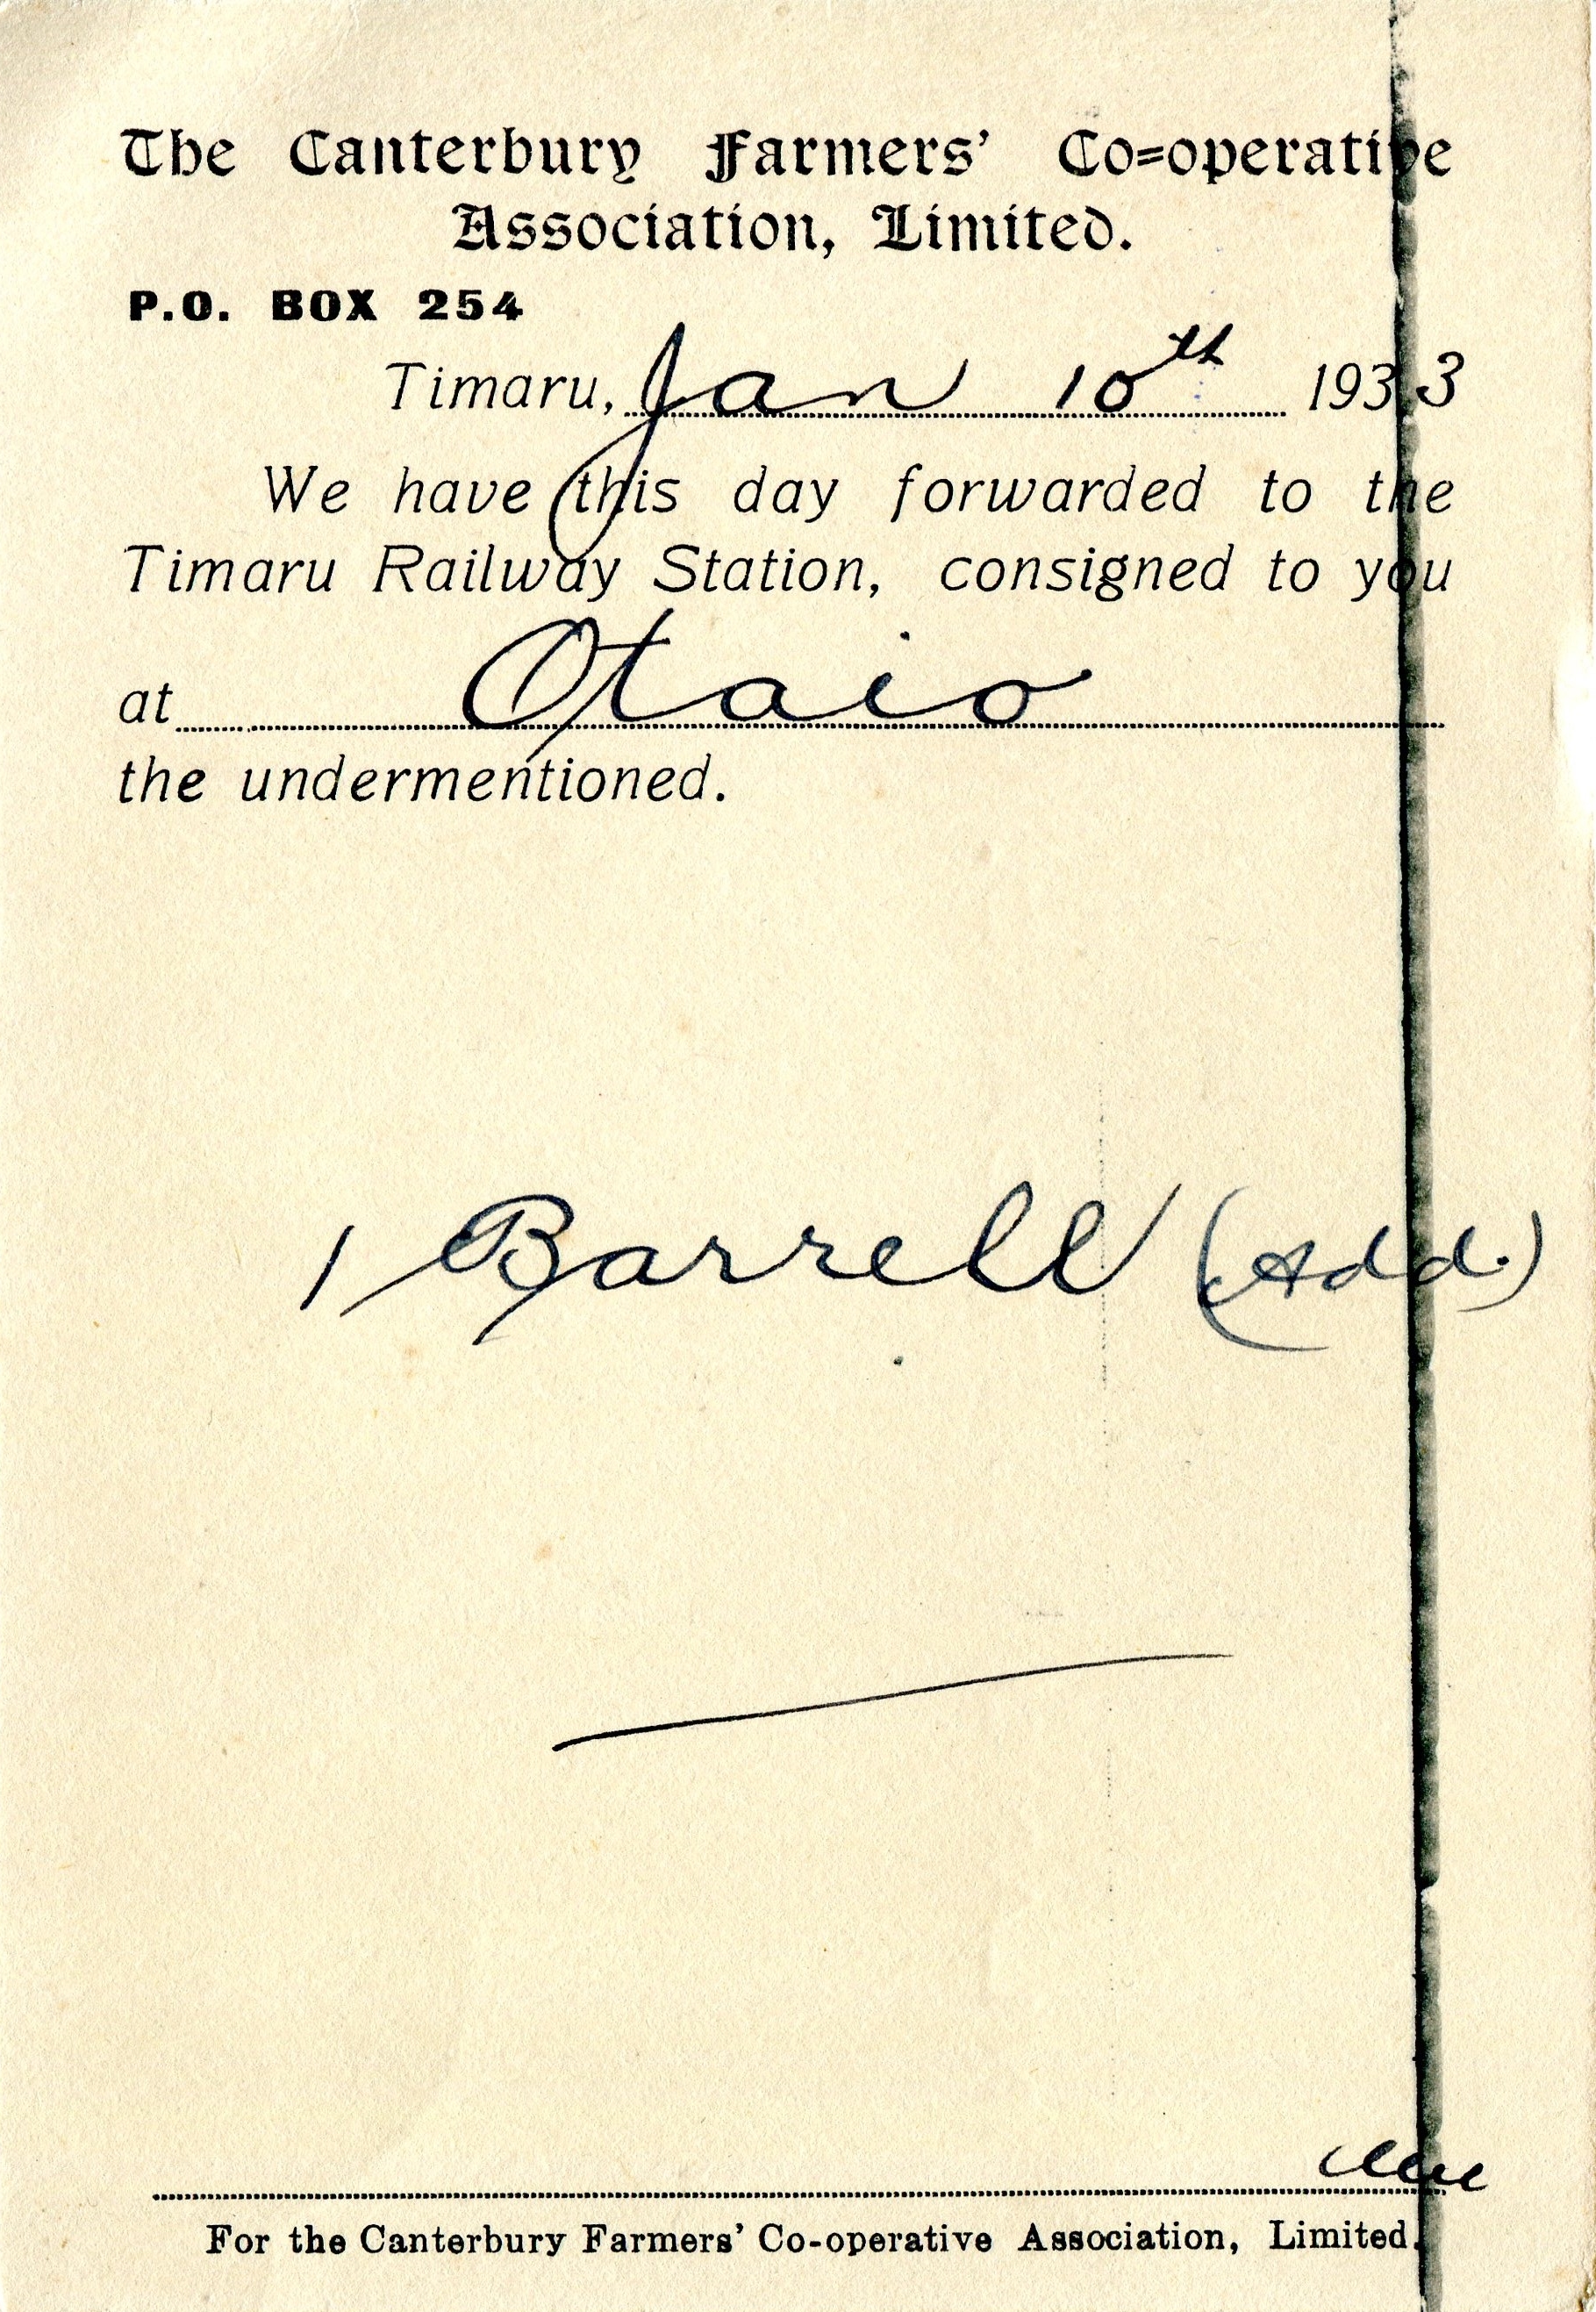 The Canterbury Farmers' Co=operative
Association, Limited.
P.O. BOX 254
Timaru, Jan 10th 1933
We have this day forwarded to the
Timaru Railway Station, consigned to you
at Otaio
the undermentioned.
1 Barrell (Add.)
For the Canterbury Farmers' Co-operative Association, Limited.